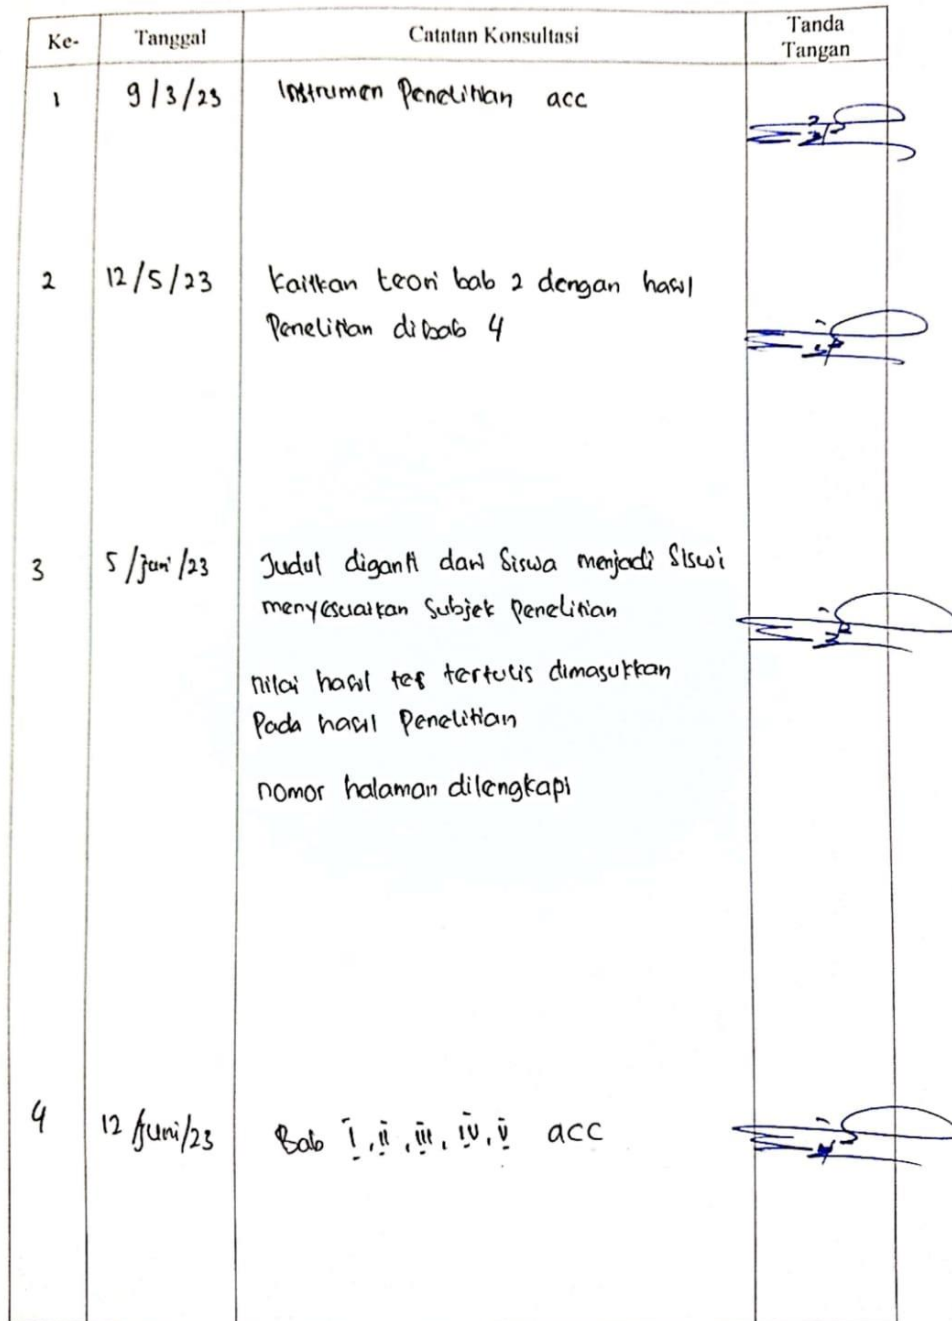 Ke- Tanggal Catatan Konsultasi Tanda
Tangan
1 9/3/23 Instrumen Penelitian acc
2 12/5/23 Kaitkan teori bab 2 dengan hasil
Penelitian di bab 4
3 5/juni/23 Judul diganti dari Siswa menjadi Siswi
menyesuaikan Subjek Penelitian
nilai hasil tes tertulis dimasukkan
Pada hasil Penelitian
nomor halaman dilengkapi
4 12/Juni/23 Bab I, II, III, IV, V acc